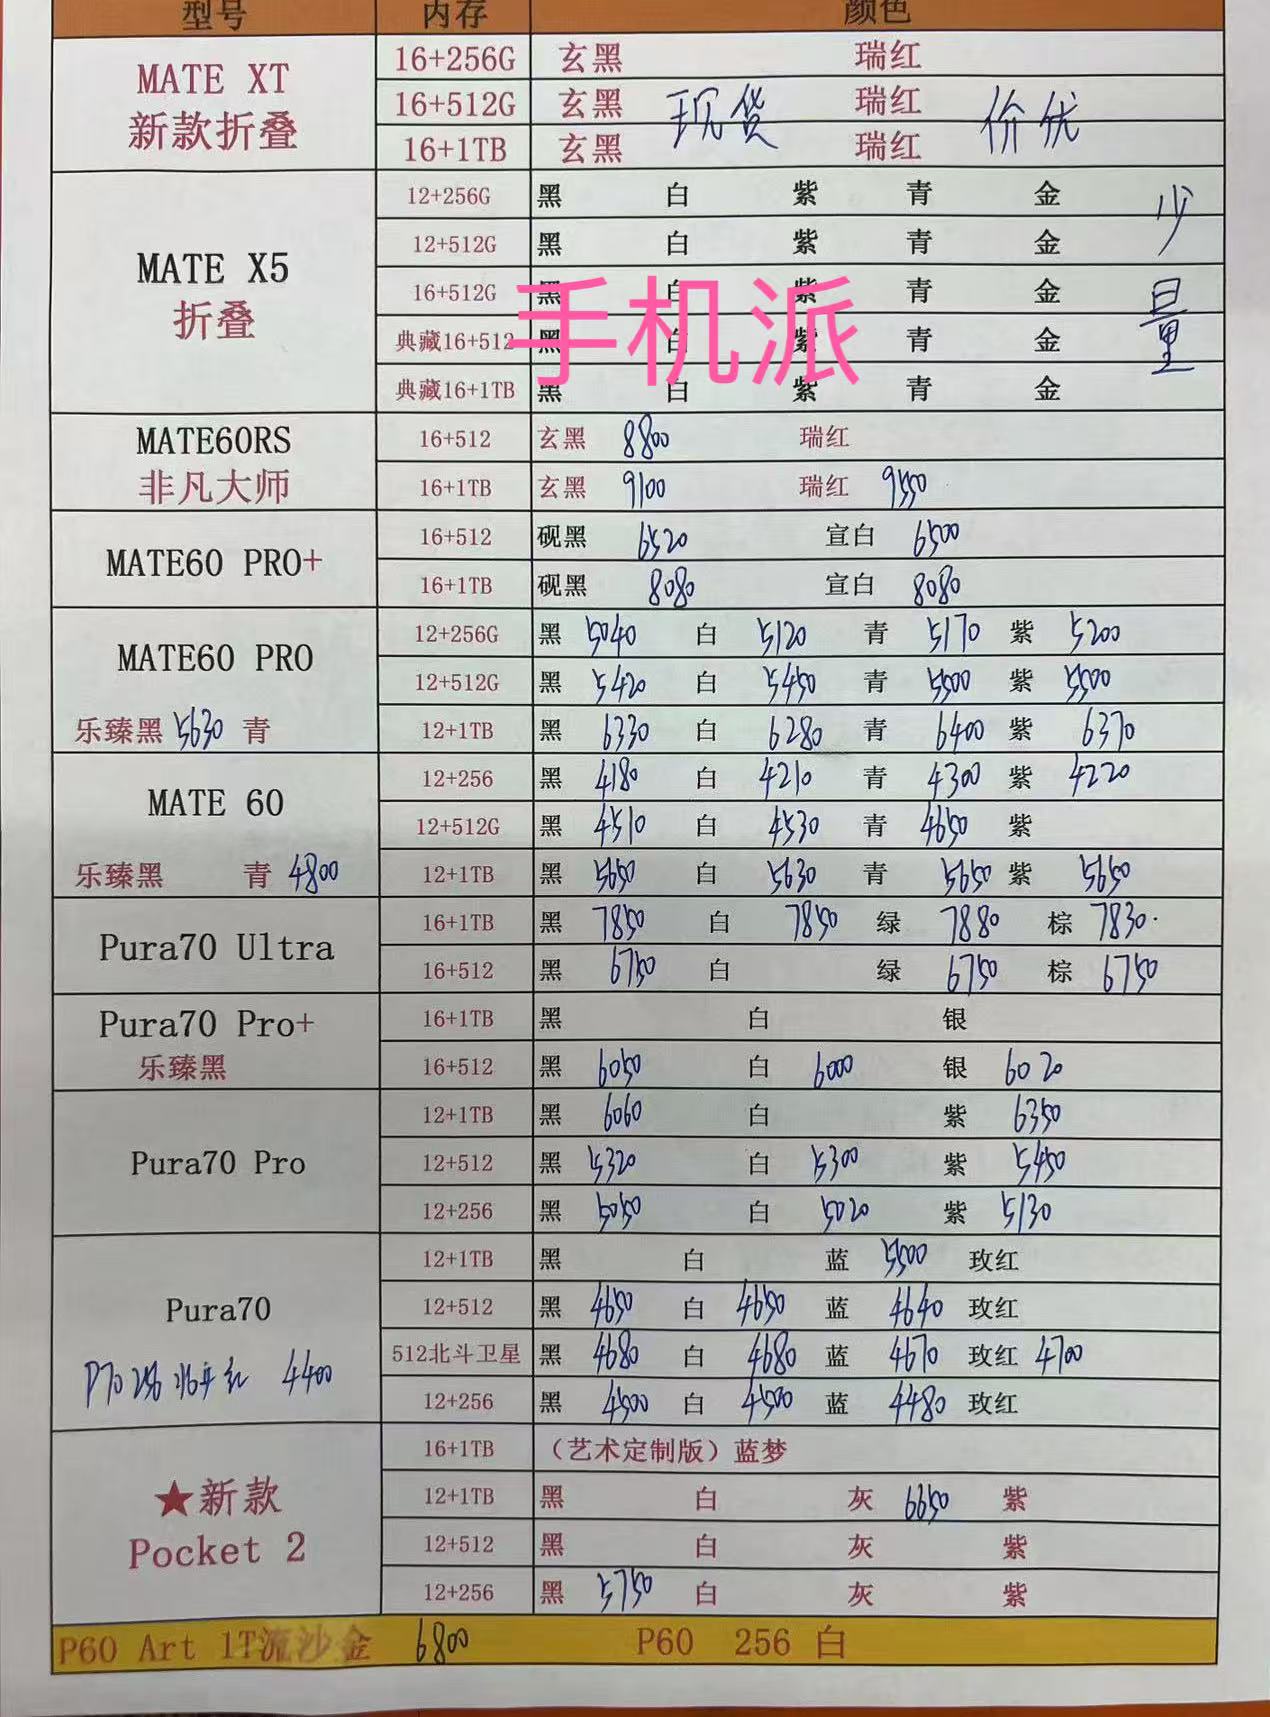 型号 内存 颜色
MATE XT 新款折叠
16+256G 玄黑 瑞红
16+512G 玄黑 现货 瑞红 价优
16+1TB 玄黑 瑞红
MATE X5 折叠 少量
12+256G 黑 白 紫 青 金
12+512G 黑 白 紫 青 金
16+512G 黑 白 紫 青 金
典藏16+512 黑 白 紫 青 金
典藏16+1TB 黑 白 紫 青 金
手机派
MATE60RS 非凡大师
16+512 玄黑 8800 瑞红
16+1TB 玄黑 9100 瑞红 9550
MATE60 PRO+
16+512 砚黑 6520 宣白 6500
16+1TB 砚黑 8080 宣白 8080
MATE60 PRO
12+256G 黑 5040 白 5120 青 5170 紫 5200
12+512G 黑 5420 白 5450 青 5500 紫 5500
乐臻黑 5630 青
12+1TB 黑 6330 白 6280 青 6400 紫 6370
MATE 60
12+256 黑 4180 白 4210 青 4300 紫 4220
12+512G 黑 4510 白 4530 青 4650 紫
乐臻黑 青 4800
12+1TB 黑 5650 白 5630 青 5650 紫 5650
Pura70 Ultra
16+1TB 黑 7850 白 7850 绿 7880 棕 7830
16+512 黑 6750 白 绿 6750 棕 6750
Pura70 Pro+ 乐臻黑
16+1TB 黑 白 银
16+512 黑 6050 白 6000 银 6020
Pura70 Pro
12+1TB 黑 6060 白 紫 6350
12+512 黑 5320 白 5300 紫 5450
12+256 黑 5050 白 5020 紫 5130
Pura70
12+1TB 黑 白 蓝 5500 玫红
12+512 黑 4650 白 4650 蓝 4640 玫红
512北斗卫星 黑 4680 白 4680 蓝 4670 玫红 4700
P70 256 红 4400
12+256 黑 4500 白 4500 蓝 4480 玫红
★新款 Pocket 2
16+1TB （艺术定制版）蓝梦
12+1TB 黑 白 灰 6650 紫
12+512 黑 白 灰 紫
12+256 黑 5750 白 灰 紫
P60 Art 1T流沙金 6800 P60 256 白